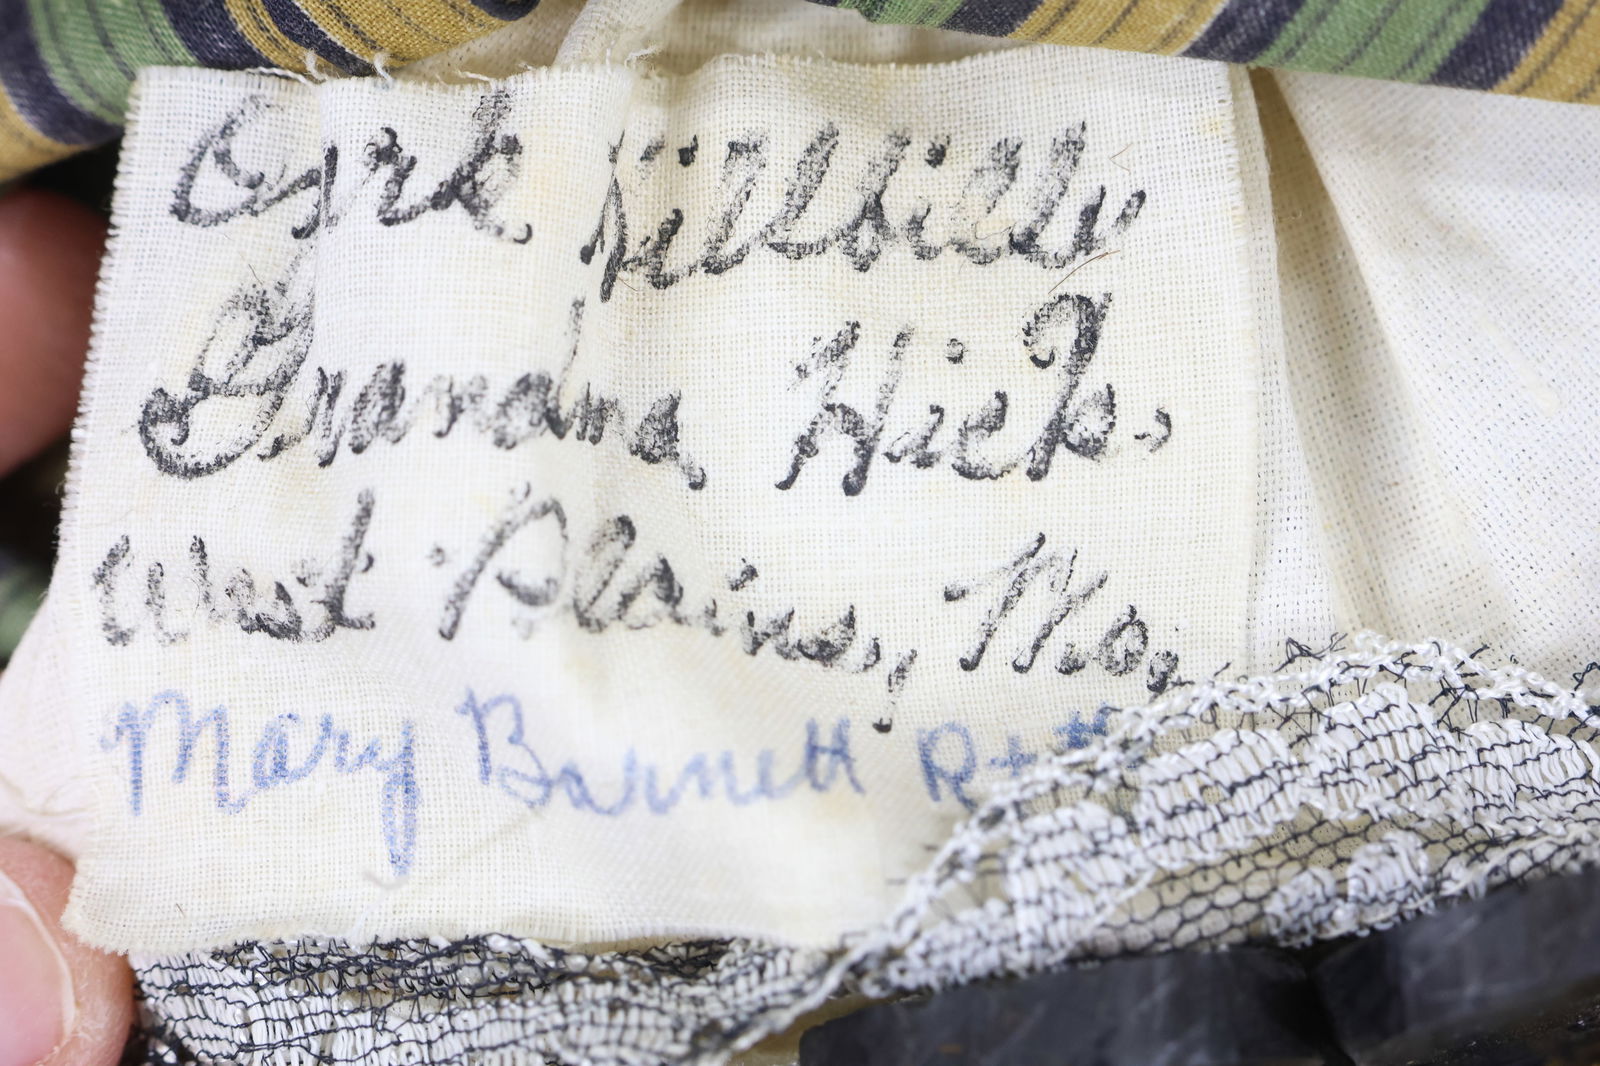 Ozrk Hillbilly
Grandma Hick.
West Plains, Mo.
Mary Barnett Rt #